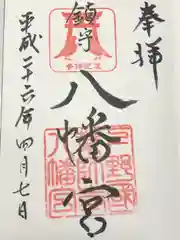 奉拝
鎮守
八幡宮
平成二十六年四月七日